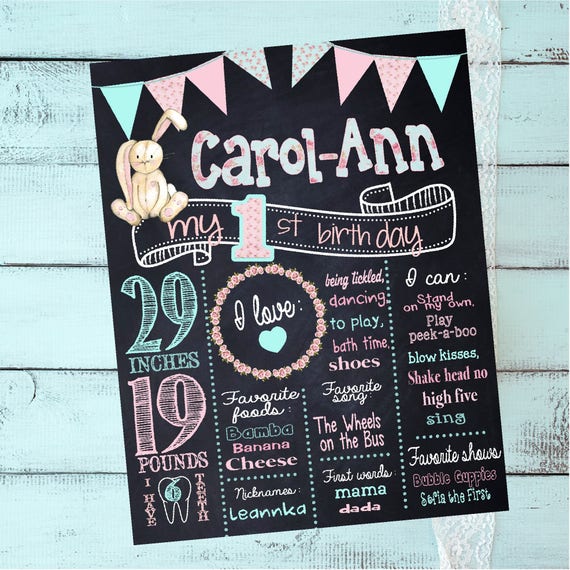 Carol-Ann
my 1st birthday
29
INCHES
19
POUNDS
I HAVE
6
TEETH
I love:
being tickled,
dancing
to play,
bath time,
shoes
I can:
Stand
on my own,
Play
peek-a-boo
blow kisses,
Shake head no
high five
sing
Favorite
foods:
Bamba
Banana
Cheese
Favorite
song:
The Wheels
on the Bus
Favorite shows
Bubble Guppies
Sofia the First
Nicknames:
Leannka
First words:
mama
dada